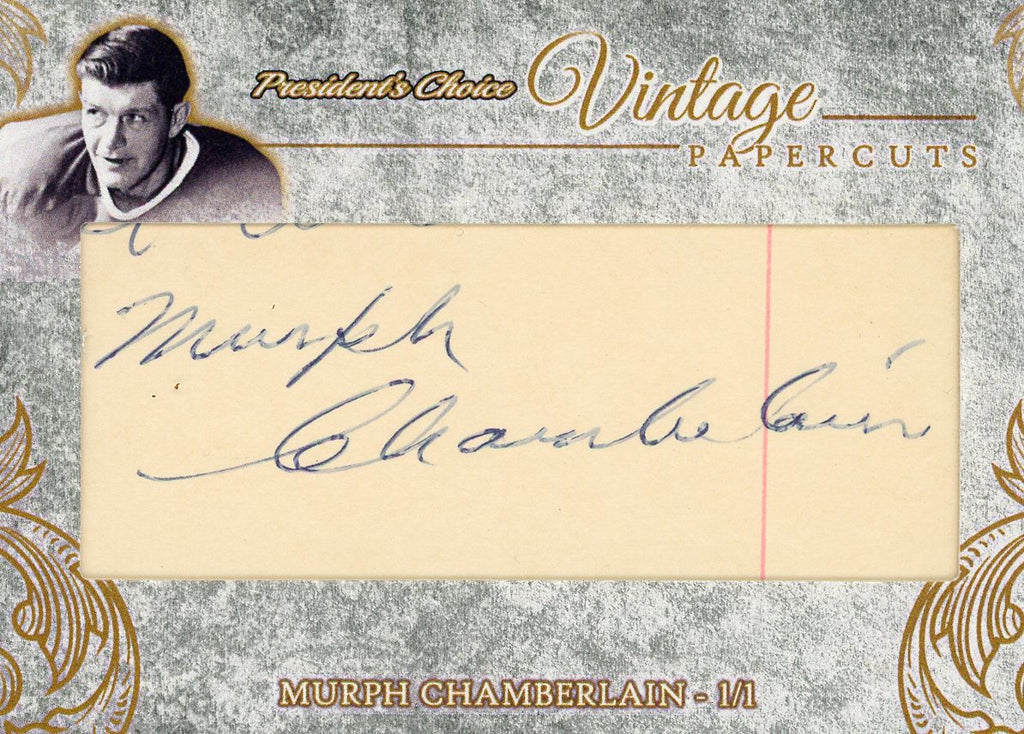 President's Choice Vintage
PAPERCUTS
Murph
Chamberlain
MURPH CHAMBERLAIN - 1/1